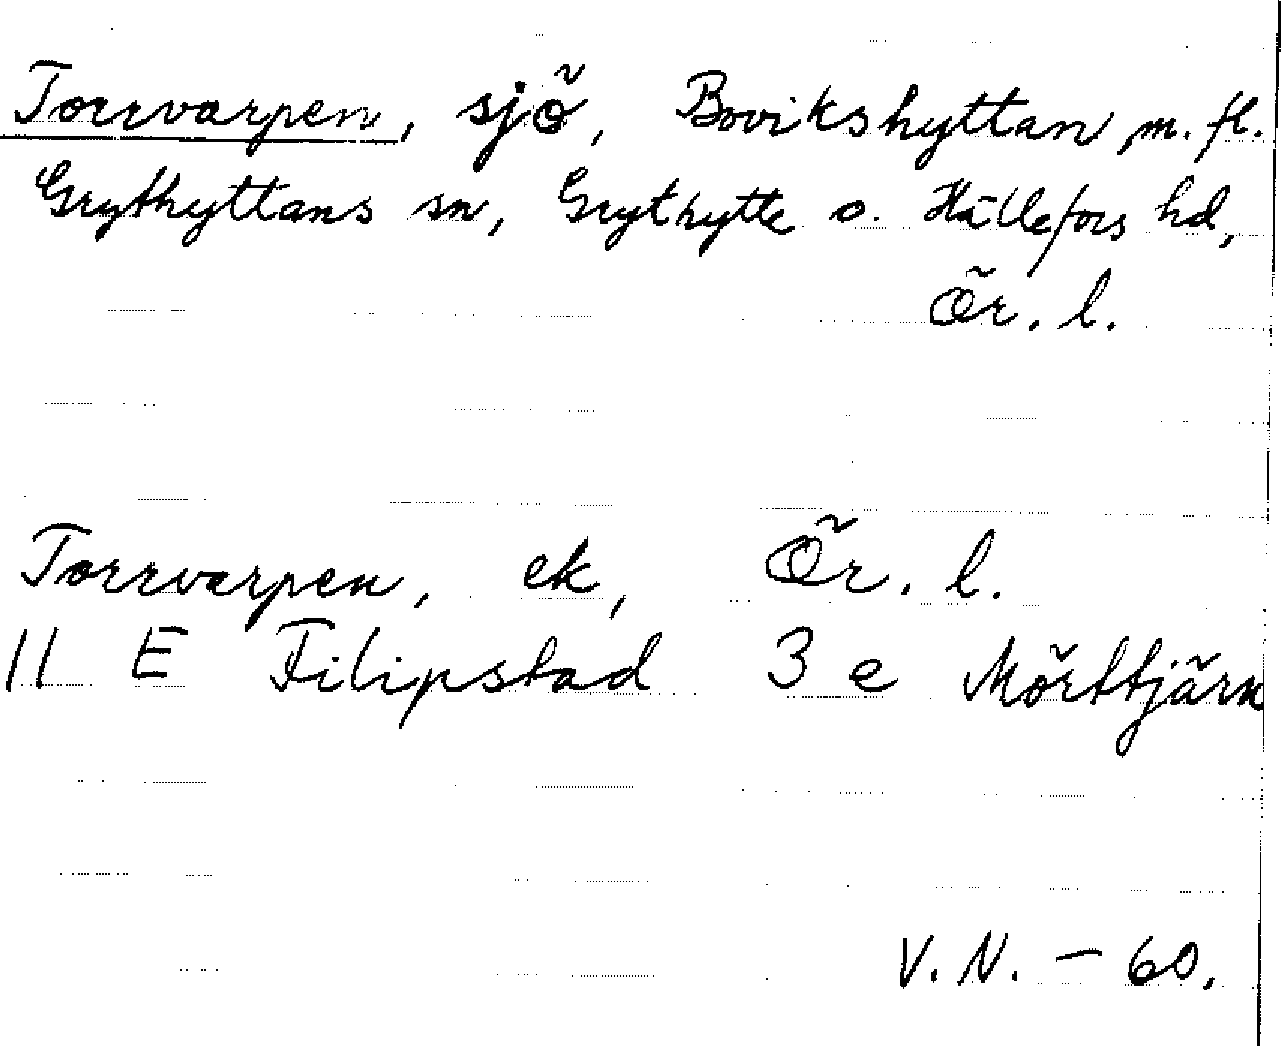 Torrvarpen, sjö, Bovikshyttan m. fl.
Grythyttans sn, Grythytte o. Hällefors hd,
Ör. l.
Torrvarpen, ek, Ör. l.
11 E Filipstad 3 e Mörttjärn
V. N. - 60.